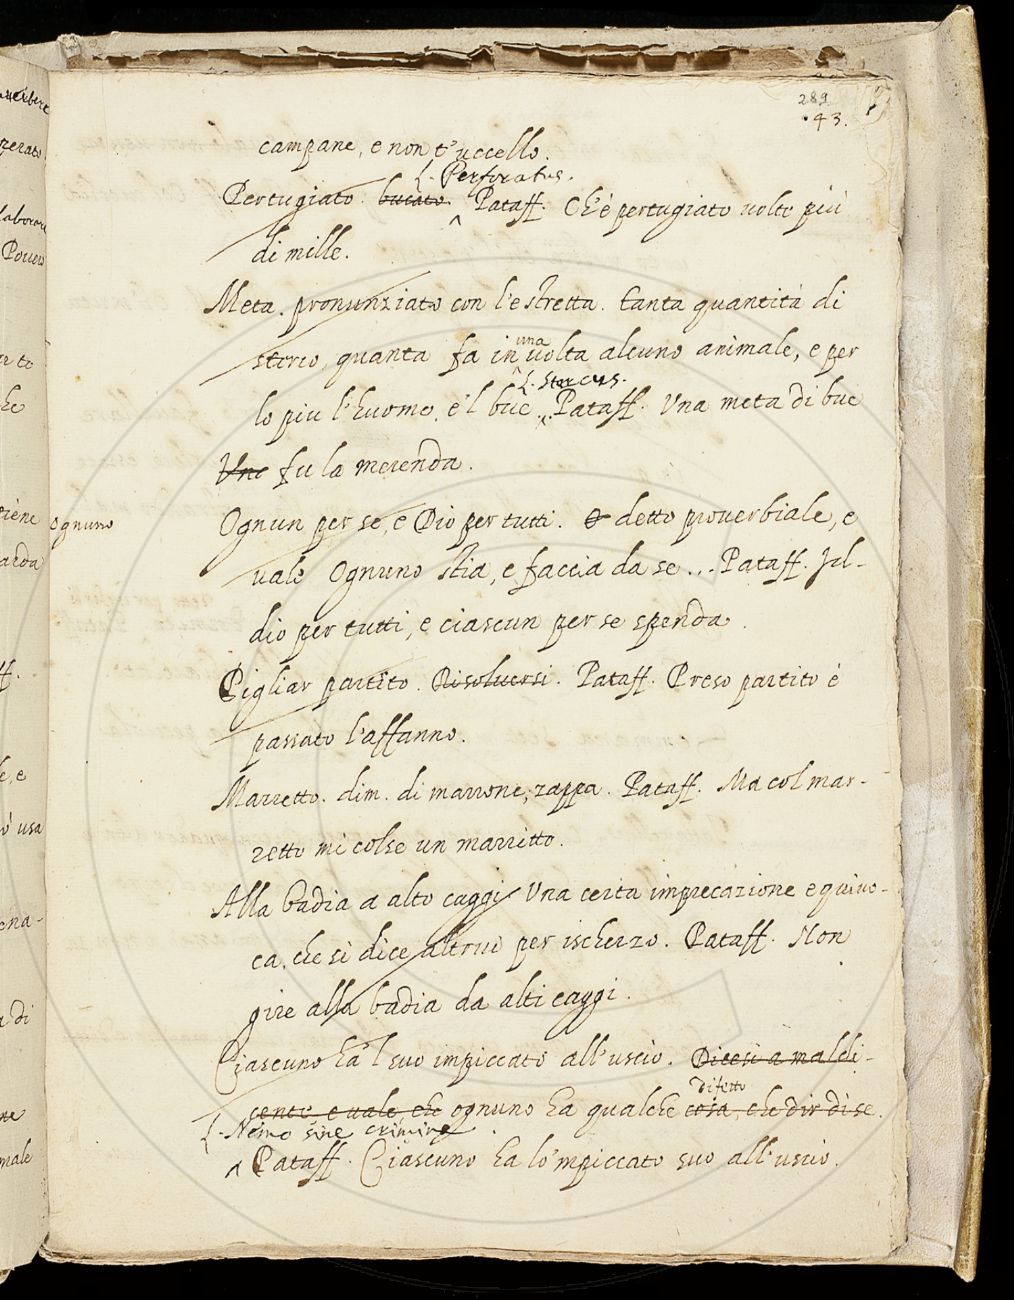 289
43.
campane, e non t'uccello.
L. Perforatus.
Pertugiato. bucato. Pataff. Ch'è pertugiato volte più
di mille.
Meta. pronunziato con l'e stretta. tanta quantità di
sterco, quanta fa in una volta alcuno animale, e per
L. Stercus.
lo piu l'huomo, e'l bue. Pataff. Una meta di bue
Une fu la merenda.
ognuno
Ognun per se, e Dio per tutti. È detto proverbiale, e
vale Ognuno stia, e faccia da se... Pataff. Id-
dio per tutti, e ciascun per se spenda.
Pigliar partito. Risolversi. Pataff. Preso partito é
passato l'affanno.
Marretto. dim. di marrone, zappa. Pataff. Ma col mar-
retto mi colse un marritto.
Alla badia a alto caggi. Una certa imprecazione equivo-
ca, che si dice altrui per ischerzo. Pataff. Non
gire alla badia da alti caggi.
Ciascuno ha'l suo impiccato all'uscio. Dicesi a maldi-
difetto
cente e vale, che ognuno ha qualche cosa, che dir di se.
L. Nemo sine crimine.
Pataff. Ciascuno ha lo'mpiccato suo all'uscio.